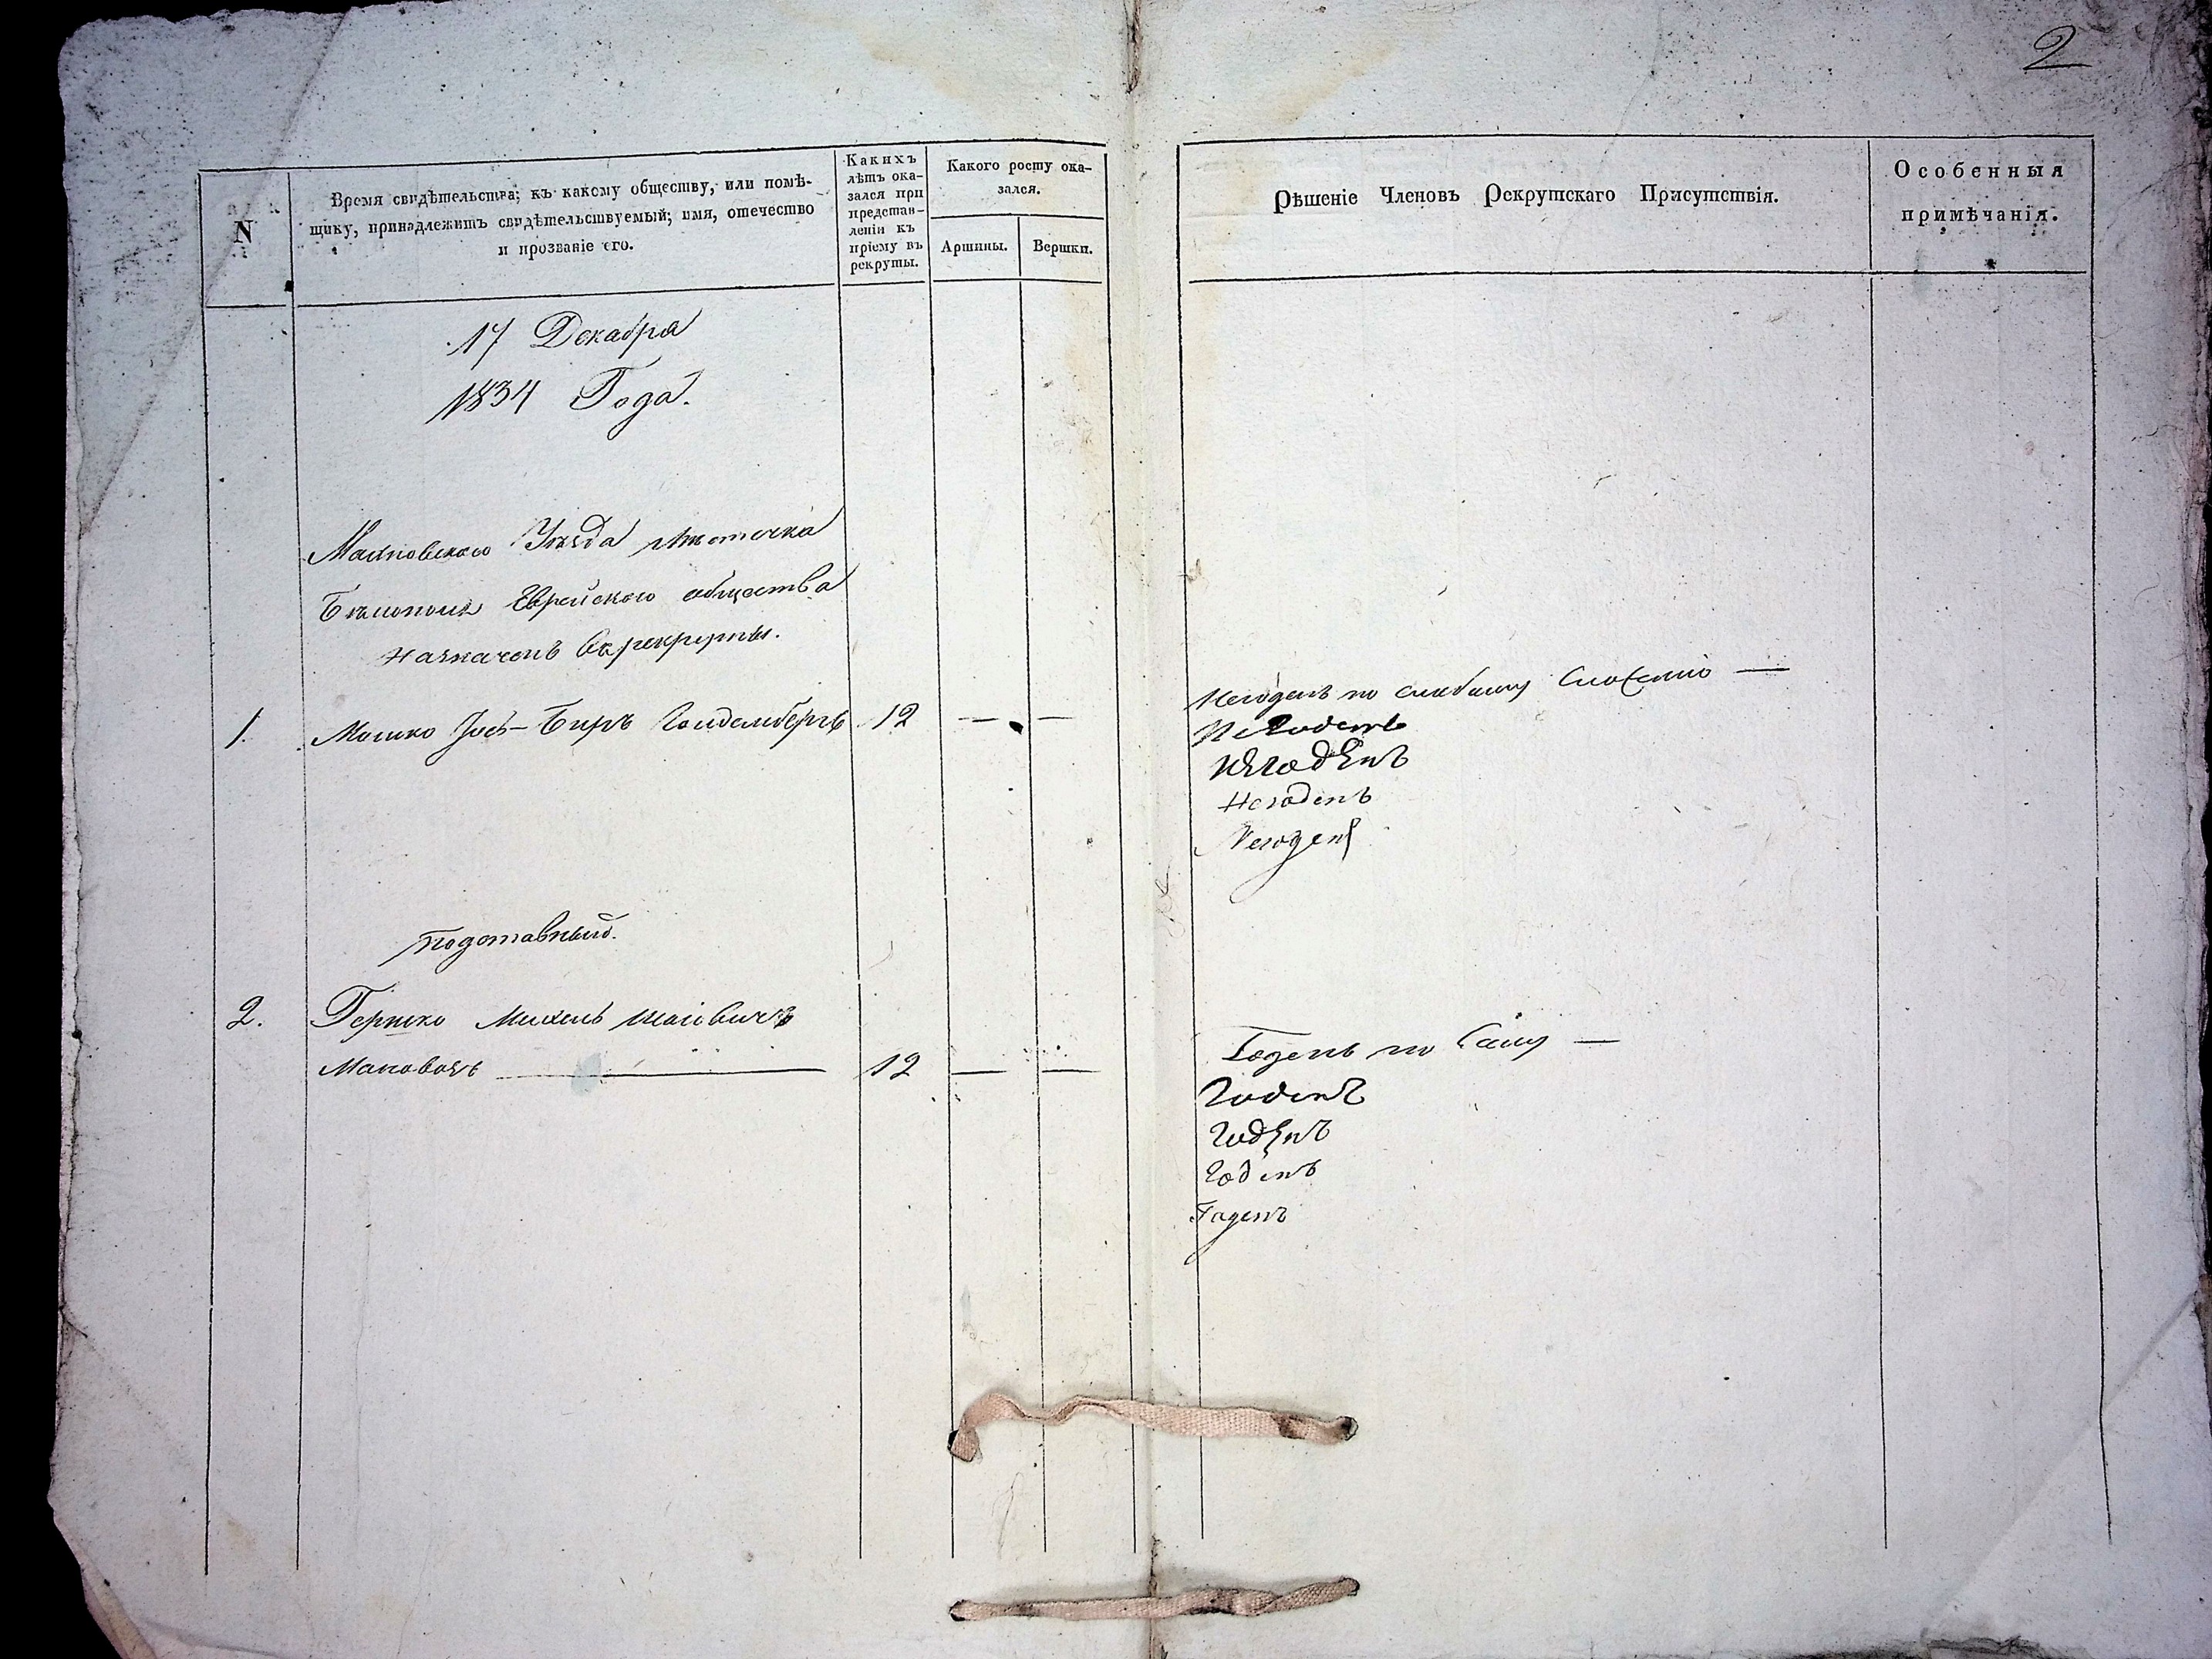 2
N
Время свидѣтельства; къ какому обществу, или помѣ-
щику, принадлежитъ свидѣтельствуемый; имя, отечество
и прозваніе его.
Какихъ
лѣтъ ока-
зался при
представ-
леніи къ
пріему въ
рекруты.
Какого росту ока-
зался.
Аршины.
Вершки.
Рѣшеніе Членовъ Рекрутскаго Присутствія.
Особенныя
примѣчанія.
17 Декабра
1834 Года.
Уѣзда местечка
Еврейского общества
Назначенъ в рекруты.
1. Мошко Гольдемберъ 12 — —
Негоденъ по слабому сложению —
Негоденъ
Негоденъ
Негоденъ
Негоденъ
подставный.
2. Гершко Шаіовичъ
12 — —
Годенъ по
Годенъ
Годенъ
Годенъ
Годенъ